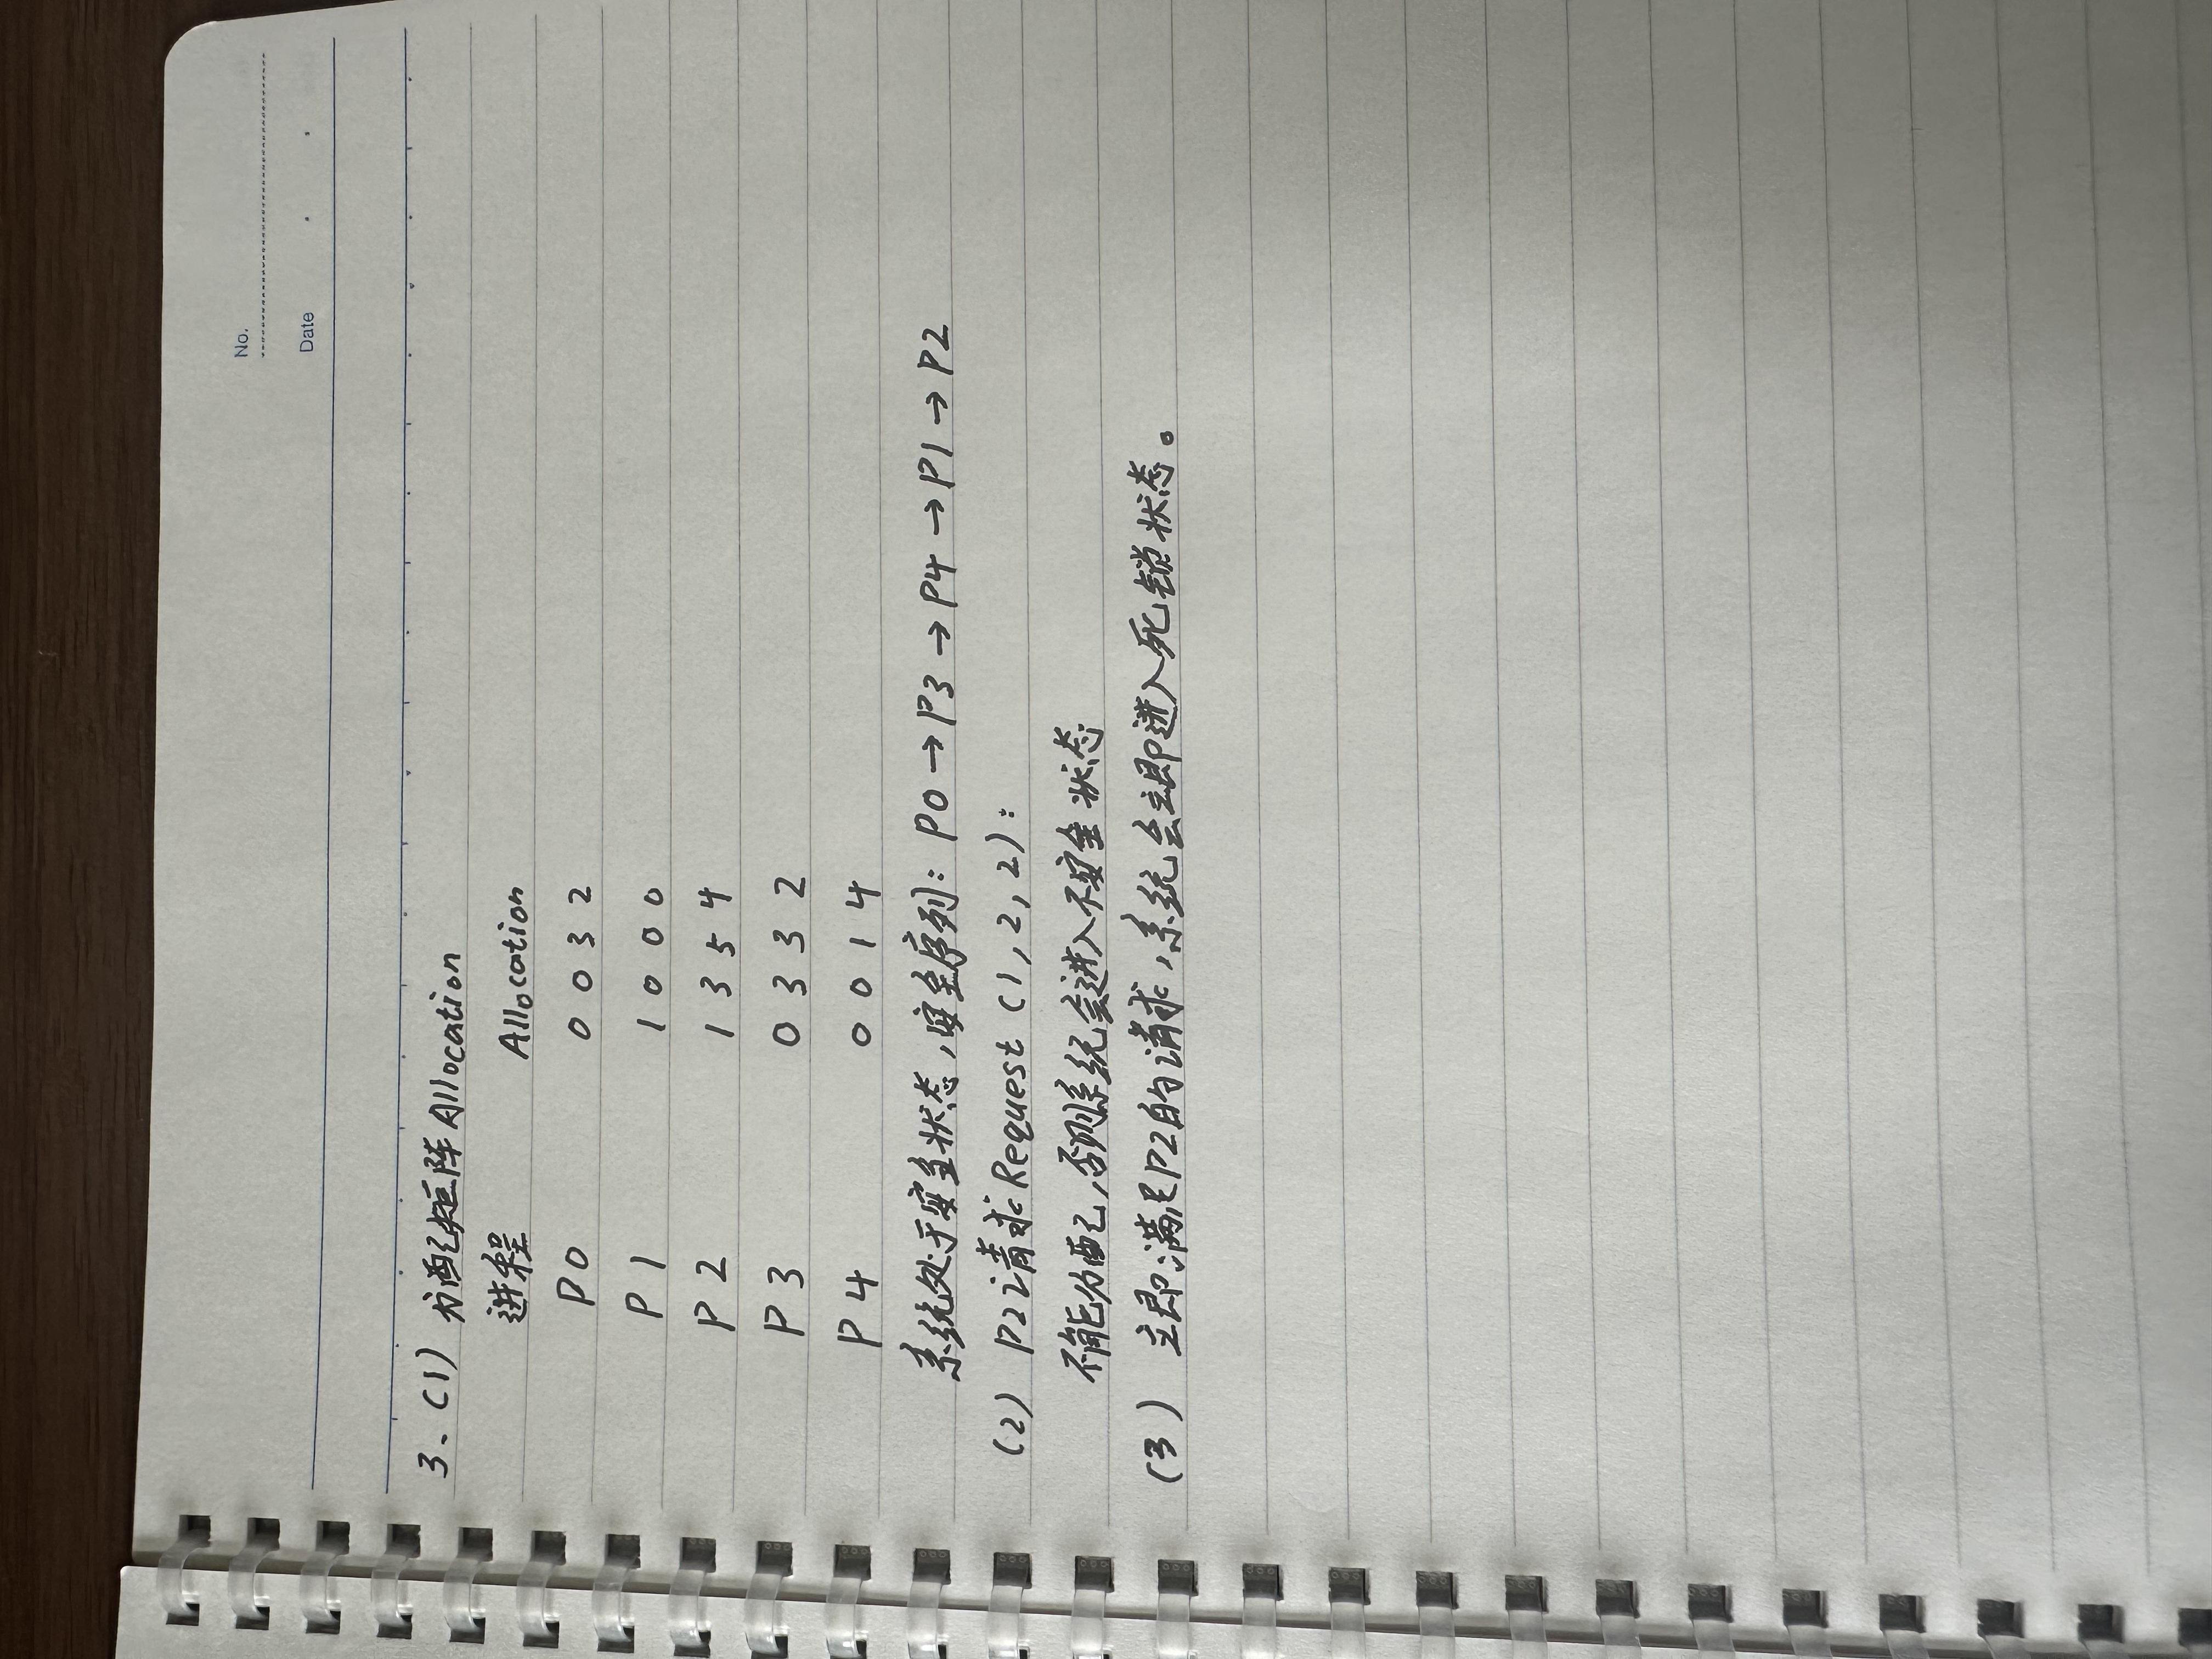 No.
Date
3、(1) 分配矩阵Allocation
进程 Allocation
P0 0 0 3 2
P1 1 0 0 0
P2 1 3 5 4
P3 0 3 3 2
P4 0 0 1 4
系统处于安全状态,安全序列: P0→P3→P4→P1→P2
(2) P2请求Request (1,2,2):
不能分配,否则系统会进入不安全状态
(3) 立即满足P2的请求,系统会立即进入死锁状态。